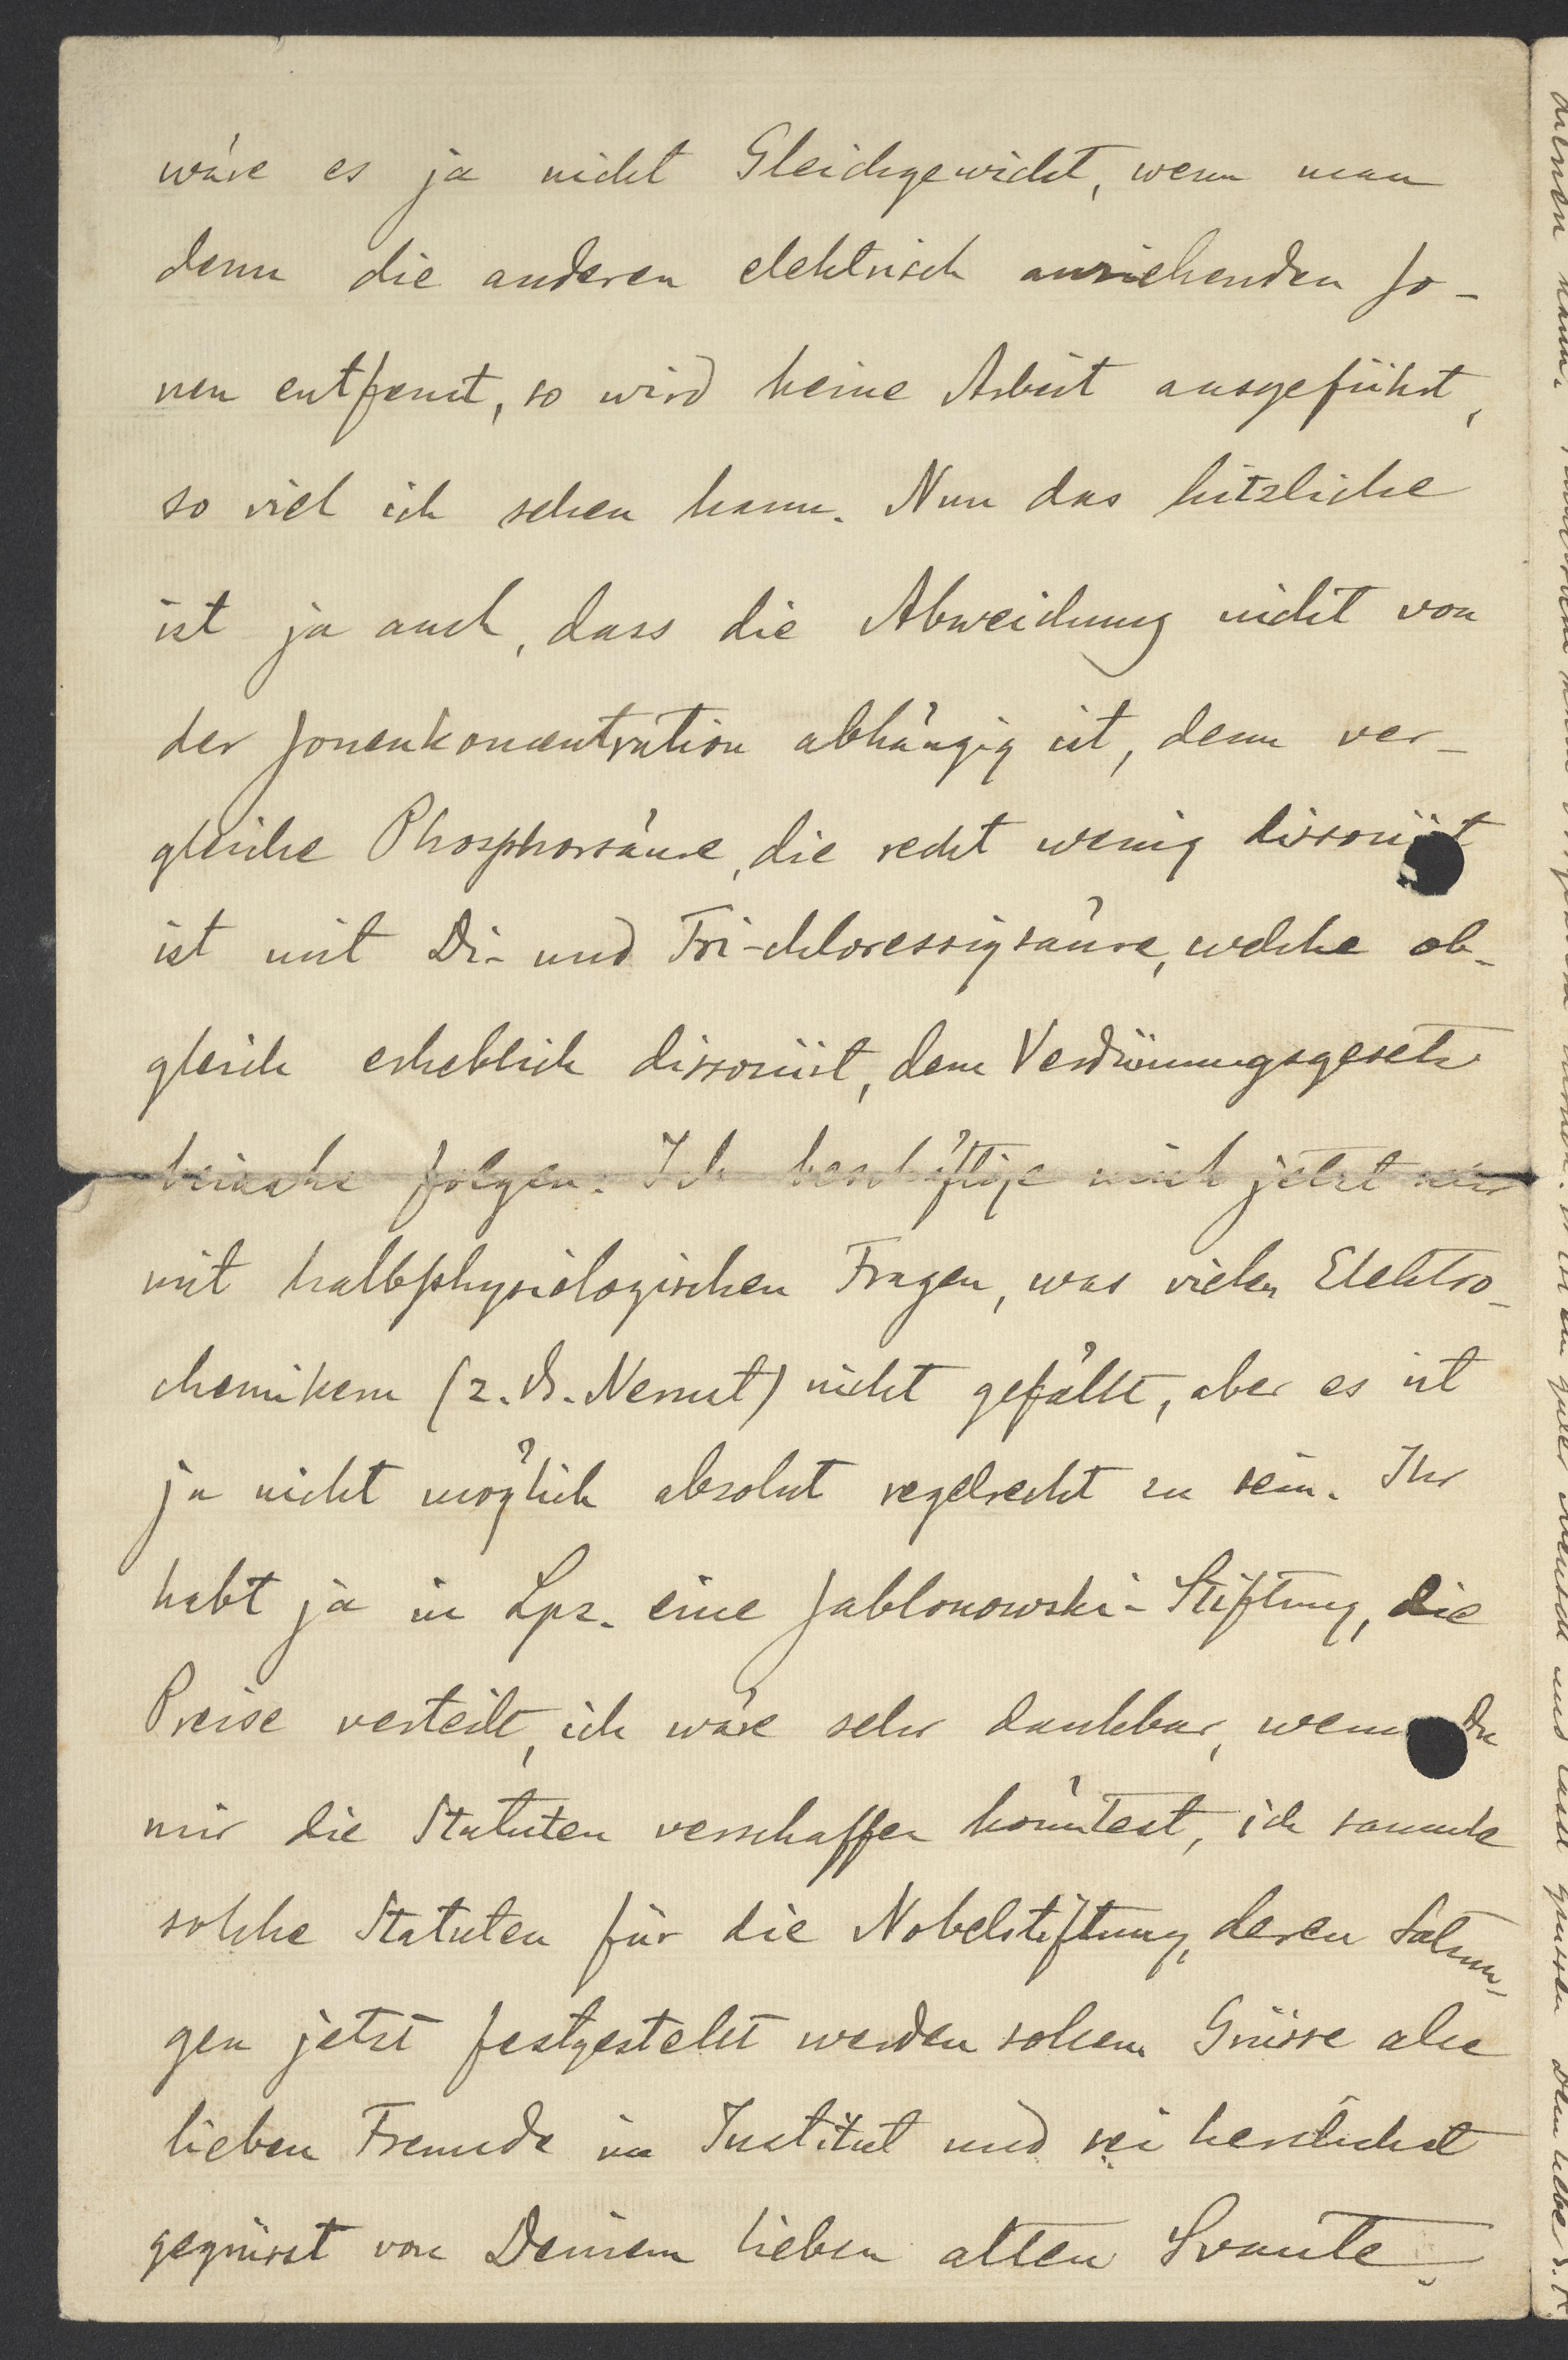 wäre es ja nicht Gleichgewicht, wenn man
denn die anderen elektrisch anziehenden Jo-
nen entfernt, so wird keine Arbeit ausgeführt,
so viel ich sehen kann. Nun das kitzliche
ist ja auch, dass die Abweichung nicht von
der Jonenkoncentration abhängig ist, denn ver-
gleiche Phosphorsäure, die recht wenig dissociirt
ist mit Di- und Tri-chloressigsäure, welche ob-
gleich erheblich dissociirt, dem Verdünnungsgesetz
beinahe folgen. Ich beschäftige mich jetzt nur
mit halbphysiologischen Fragen, was vielen Elektro-
chemikern (z. B. Nernst) nicht gefällt, aber es ist
ja nicht möglich absolut regelrecht zu sein. Ihr
habt ja in Lpz. eine Jablonowski-Stiftung, die
Preise verteilt, ich wäre sehr dankbar, wenn Du
mir die Statuten verschaffen könntest, ich sammle
solche Statuten für die Nobelstiftung, deren Satzun-
gen jetzt festgestellt werden sollen. Grüsse alle
lieben Freunde im Institut und sei herzlichst
gegrüsst von Deinem lieben alten Svante.